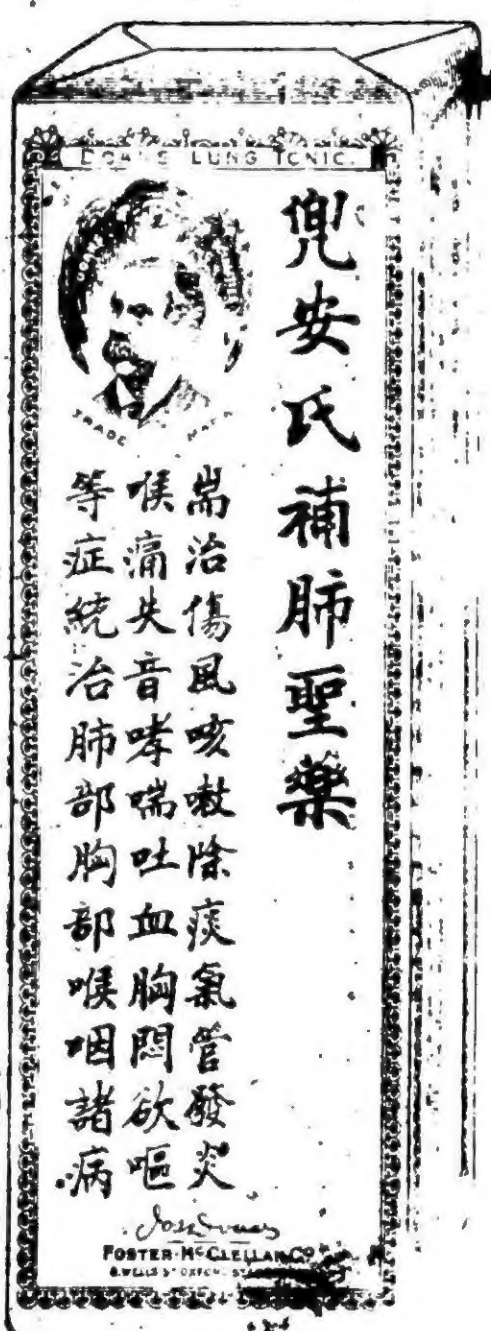 DOAN'S LUNG TONIC.
兜安氏補肺聖藥
TRADE MARK
耑治傷風咳嗽除痰氣管發炎
喉痛失音哮喘吐血胸悶欲嘔
等症統治肺部胸部喉咽諸病
FOSTER-McCLELLAN CO
8, WELLS ST OXFORD ST